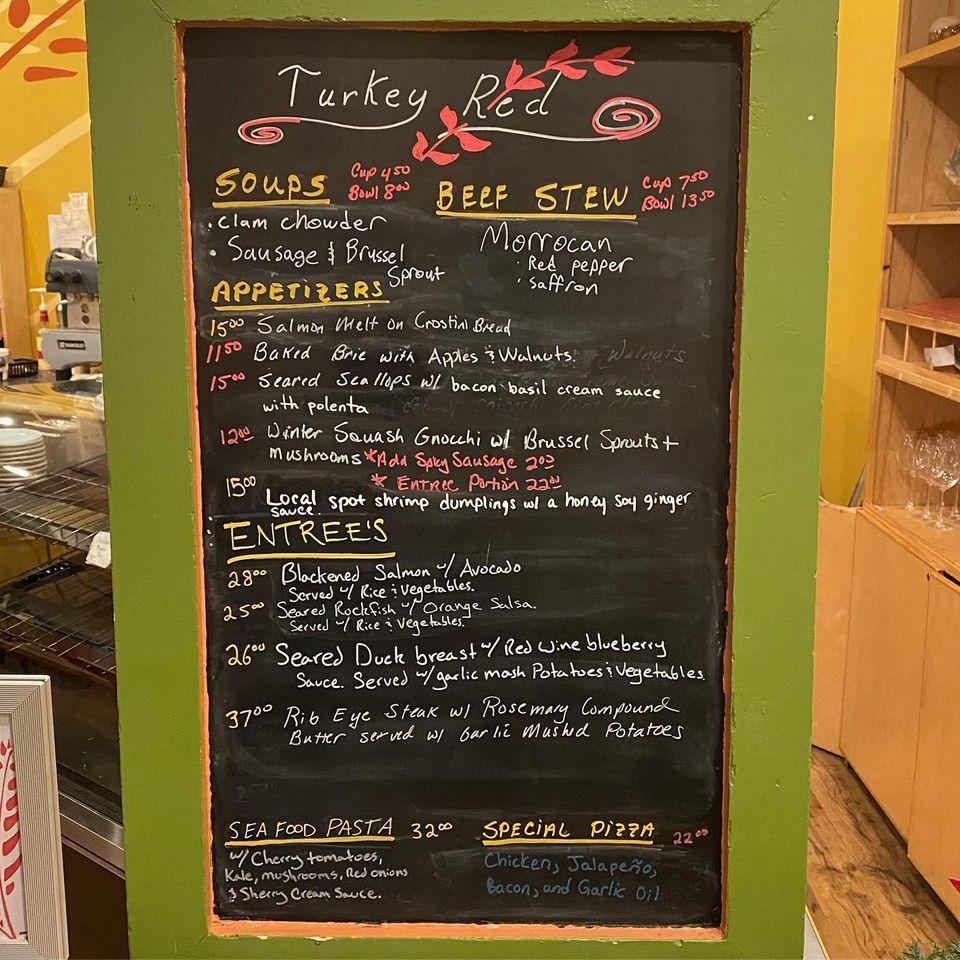 Turkey Red
SOUPS Cup 4 50
Bowl 8 00
BEEF STEW Cup 7 50
Bowl 13 50
• Clam chowder
• Sausage & Brussel
Sprout
Morrocan
• Red pepper
• saffron
APPETIZERS
15 00 Salmon Melt on Crostini Bread
11 50 Baked Brie with Apples & Walnuts. Walnuts
15 00 Seared Scallops w/ bacon basil cream sauce
with polenta
12 00 Winter Squash Gnocchi w/ Brussel Sprouts +
Mushrooms *Add Spicy Sausage 2 00
* Entree Portion 22 00
15 00 Local spot shrimp dumplings w/ a honey soy ginger
sauce.
ENTREE'S
28 00 Blackened Salmon w/ Avocado
Served w/ Rice & Vegetables.
25 00 Seared Rockfish w/ Orange Salsa.
Served w/ Rice & Vegetables.
26 00 Seared Duck breast w/ Red wine blueberry
Sauce. Served w/ garlic mash Potatoes & Vegetables.
37 00 Rib Eye Steak w/ Rosemary Compound
Butter served w/ Garlic Mashed Potatoes
25 00
SEA FOOD PASTA 32 00
w/ Cherry tomatoes,
Kale, mushrooms, Red onions
& Sherry Cream Sauce.
SPECIAL PIZZA 22 00
Chicken, Jalapeño,
Bacon, and Garlic Oil
RANCILIO